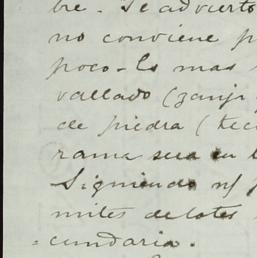 bre. Te advierto
no conviene p
poco - Es mas
vallado (zanja
de piedra (tec
rama sea en l
Siguiendo n/
mites de lotes
cundaria.